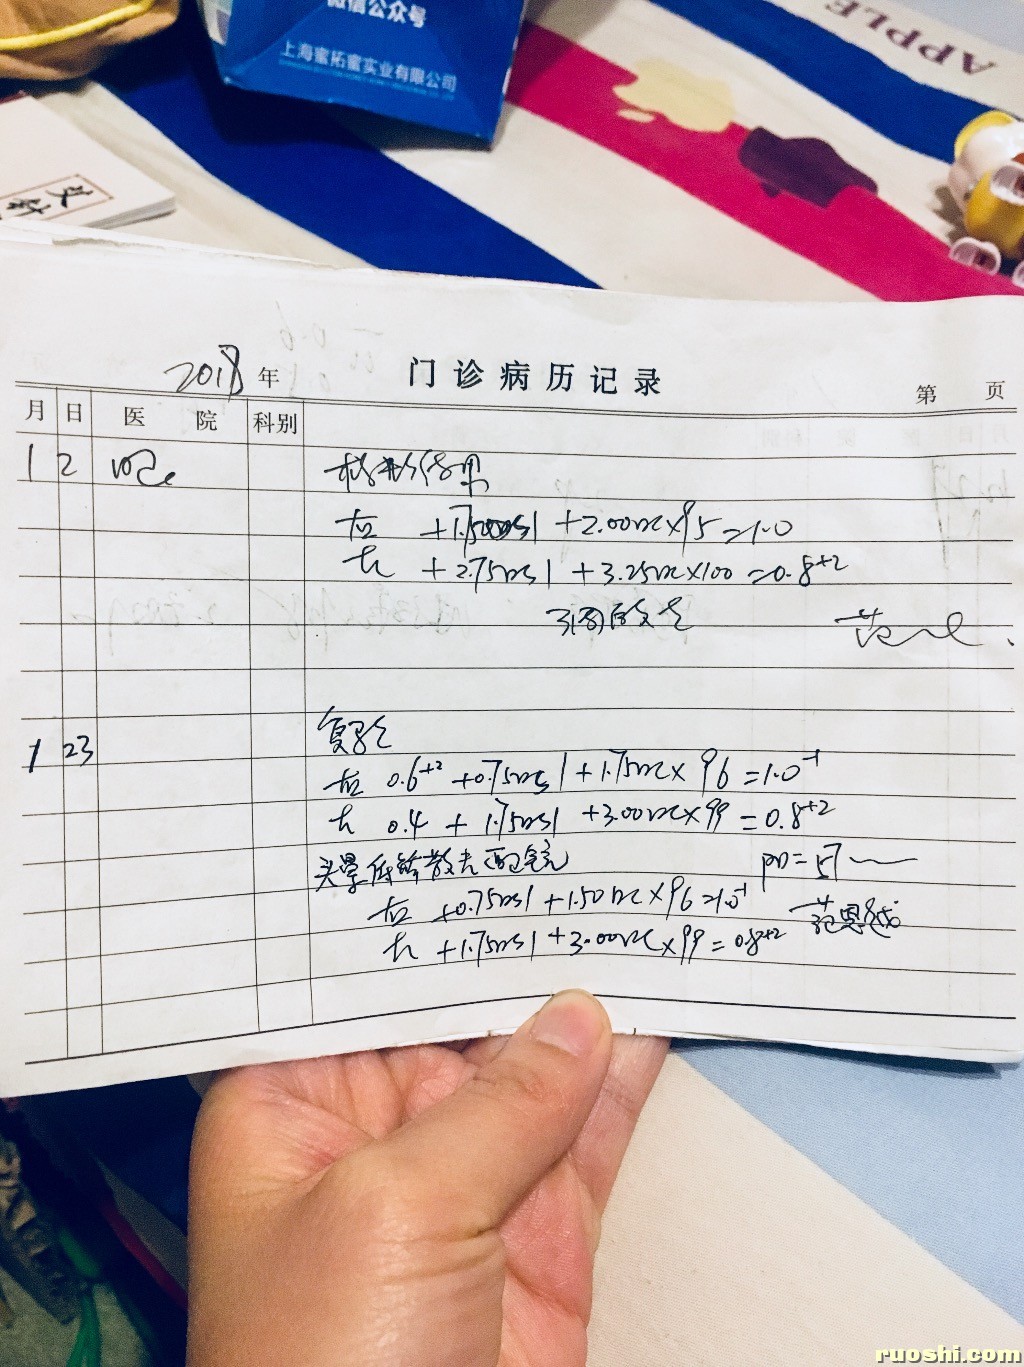 微信公众号
上海蜜拓蜜实业有限公司
APPLE
艾针
2018年 门诊病历记录 第 页
月 日 医 院 科别
1 2 眼 检影结果
右 +1.50DS +2.00DC×95=1.0
左 +2.75DS +3.25DC×100=0.8+2
1 23 复验
右 0.6+2 +0.75DS +1.75DC×96=1.0-1
左 0.4 +1.75DS +3.00DC×99=0.8+2
头晕 低 散光 配镜 PD=57
右 +0.75DS +1.50DC×96=1.0-1
左 +1.75DS +3.00DC×99=0.8+2
ruoshi.com